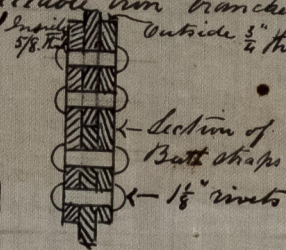 iron branche
Inside Outside 3/4" th
5/8 th
Section of
Butt straps
1 1/8" rivets